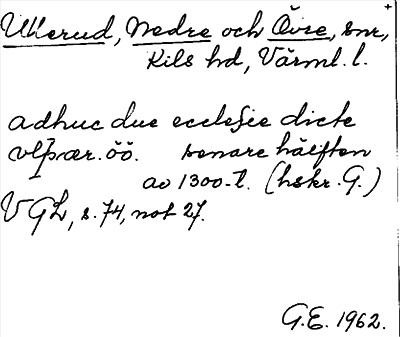 Ullerud, Nedre och Övre, snr,
Kils hd, Värml. l.
adhuc due ecclesie dicte
vlþær. öö. senare hälften
av 1300-t. (hskr. G.)
VGL, s. 74, not 27.
G.E. 1962.